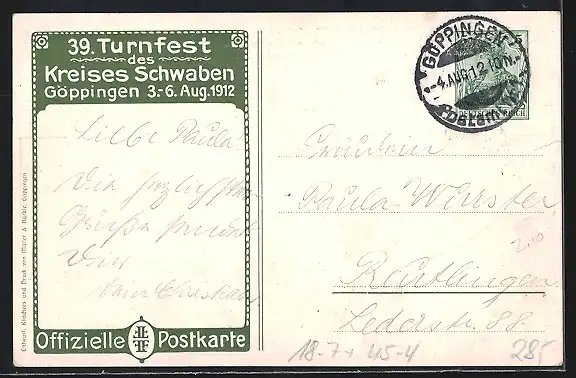 39. Turnfest
des
Kreises Schwaben
Göppingen 3.-6. Aug. 1912
Liebe Paula
Die herzlichsten
Grüße sendet
Dein
Offizielle Postkarte
Entwurf, Klischees und Druck von Müller & Bader, Göppingen
GÖPPINGEN
-4. AUG. 12. 10 N.
Postamt
REICH
Fräulein
Paula
Reutlingen
Lederstr. 88.
2,10
18-7+ 45-4
28,-